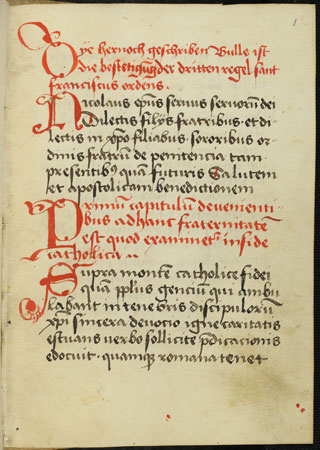 1
Dye hernoch geschriben Bulle ist
die bestetigung der dritten regel sant
franciscus ordens.
Nicolaus ep̄us seruus seruorū dei
Dilectis filijs fratribus et di
lectis in xp̄o filiabus sororibus or-
dinis fratrū de penitencia tam
presentib⁹ quā futuris Salutem
et apostolicam benedictionem
Primum capitulū de uenienti-
bus ad hanc fraternitatē
est quod examinēt⁹ in fide
catholica
Supra montē catholice fidei
quā pplūs genciū qui ambu
labant in tenebris discipulorū
xp̄i sincera deuocio igne caritatis
estuans uerbo sollicite p̄dicacionis
edocuit · quamqꝫ romana tenet